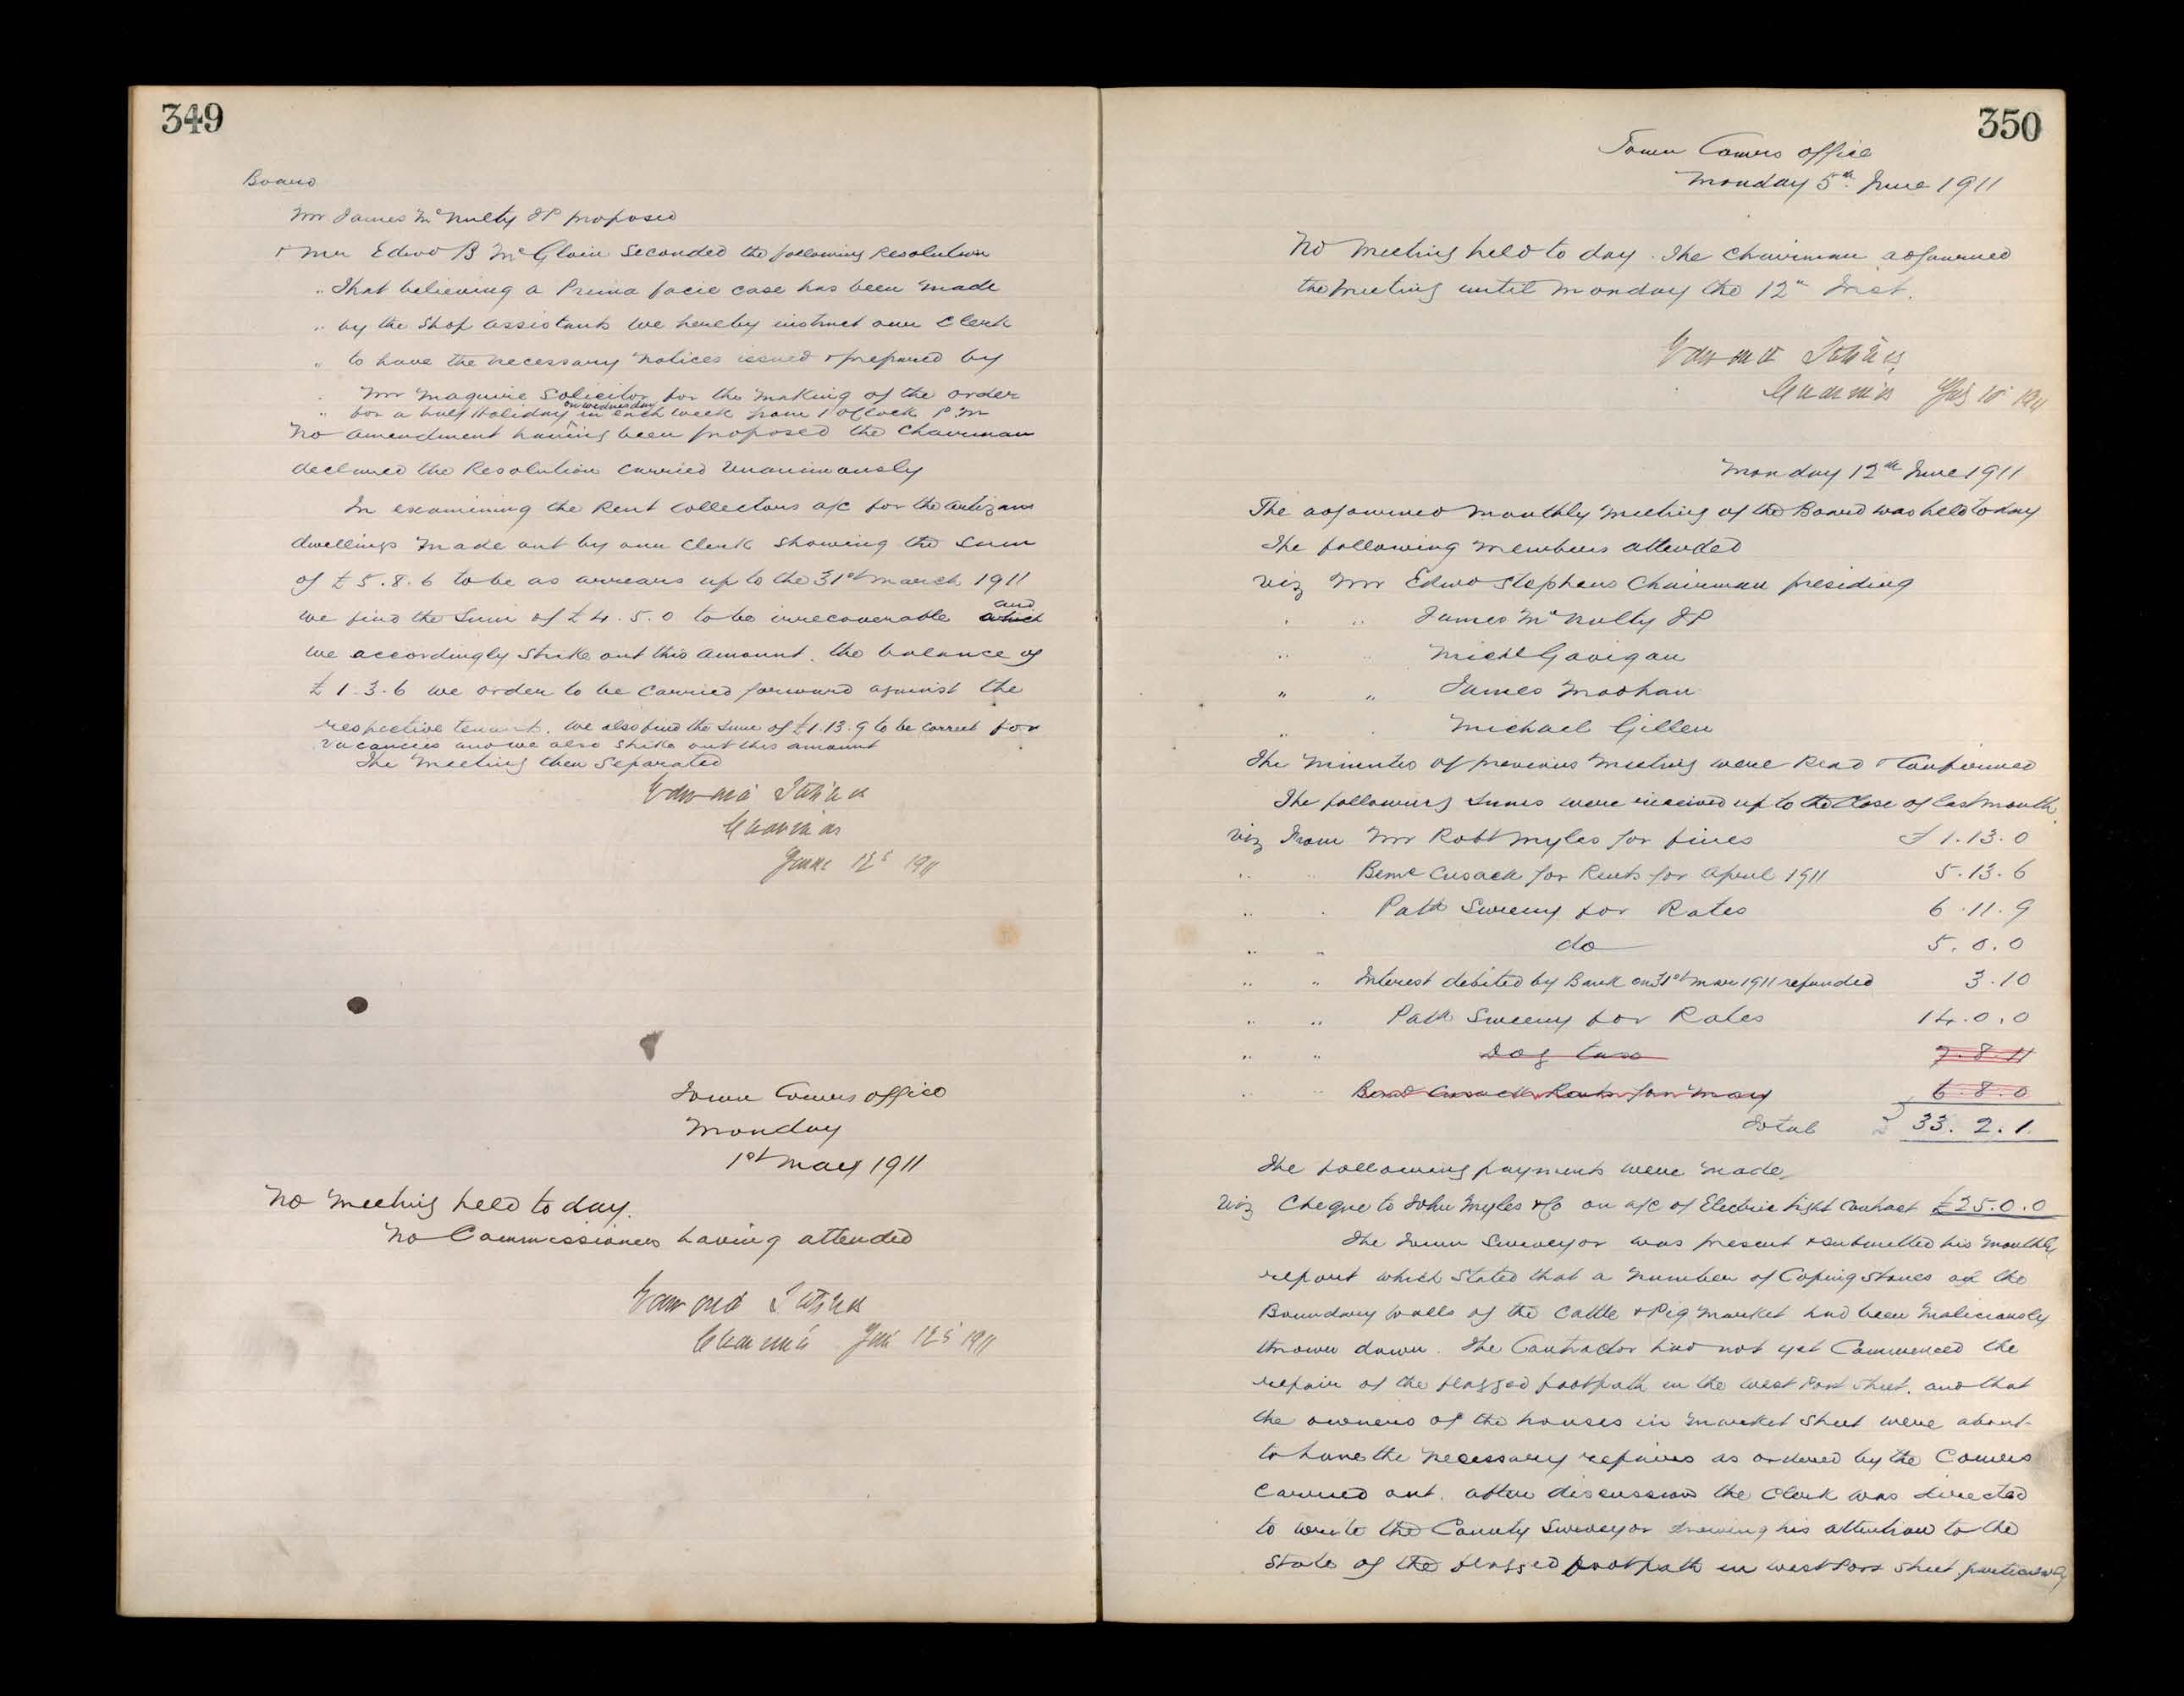 349
Board
Mr James McNulty JP proposed
& Mr Edwd B McGloin Seconded the following Resolution
" That believing a Prima facie case has been made
" by the Shop assistants we hereby instruct our Clerk
" to have the necessary notices issued & prepared by
" Mr Maguire Solicitor for the making of the order
" for a half Holiday on Wednesday in each week from 1 oClock P.M
No amendment having been proposed the Chairman
declared the Resolution carried unanimously
In examining the Rent Collectors a/c for the artizans
dwellings made out by our Clerk showing the Sum
of £5.8.6 to be as arrears up to the 31st March 1911
we find the Sum of £4.5.0 to be irrecoverable and which
we accordingly strike out this amount. the balance of
£1.3.6 we order to be carried forward against the
respective tenant. We also find the sum of £1.13.9 to be correct for
vacancies and we also strike out this amount
The Meeting then Separated
Edward Stephens
Chairman
June 12th 1911
Town Comrs office
Monday
1st May 1911
No Meeting held to day.
No Commissioners having attended
Edward Stephens
Chairman June 12th 1911
350
Town Comrs office
Monday 5th June 1911
No Meeting held to day. The Chairman adjourned
the Meeting until Monday the 12th Inst.
Edward Stephens
Chairman July 10 1911
Monday 12th June 1911
The adjourned Monthly Meeting of the Board was held to day
The following Members attended
viz Mr Edwd Stephens Chairman presiding
" " James McNulty JP
" " Michl Gavigan
" " James Moohan
" " Michael Gillen
The Minutes of previous Meeting were Read & Confirmed
The following Sums were received up to the Close of last month
viz From Mr Robt Myles for fines £1.13.0
" " Bernd Cusack for Rents for April 1911 5.13.6
" " Patk Sweeny for Rates 6.11.9
" " do 5.0.0
" " Interest debited by Bank on 31st Mar 1911 refunded 3.10
" " Patk Sweeny for Rates 14.0.0
" " Dog tax 7.8.11
" " Bernd Cusack Rents for May 6.8.0
Total £33.2.1
The following payments were made
viz Cheque to John Myles & Co on a/c of Electric light Contract £25.0.0
The Town Surveyor was present & submitted his Monthly
report which stated that a number of Coping Stones of the
Boundary walls of the Cattle & Pig Market had been Maliciously
thrown down. The Contractor had not yet Commenced the
repair of the flagged footpath in the West Port Street. and that
the owners of the houses in Market Street were about
to have the necessary repairs as ordered by the Comrs
Carried out. after discussion the Clerk was directed
to write the County Surveyor drawing his attention to the
State of the flagged footpath in West Port Street particularly